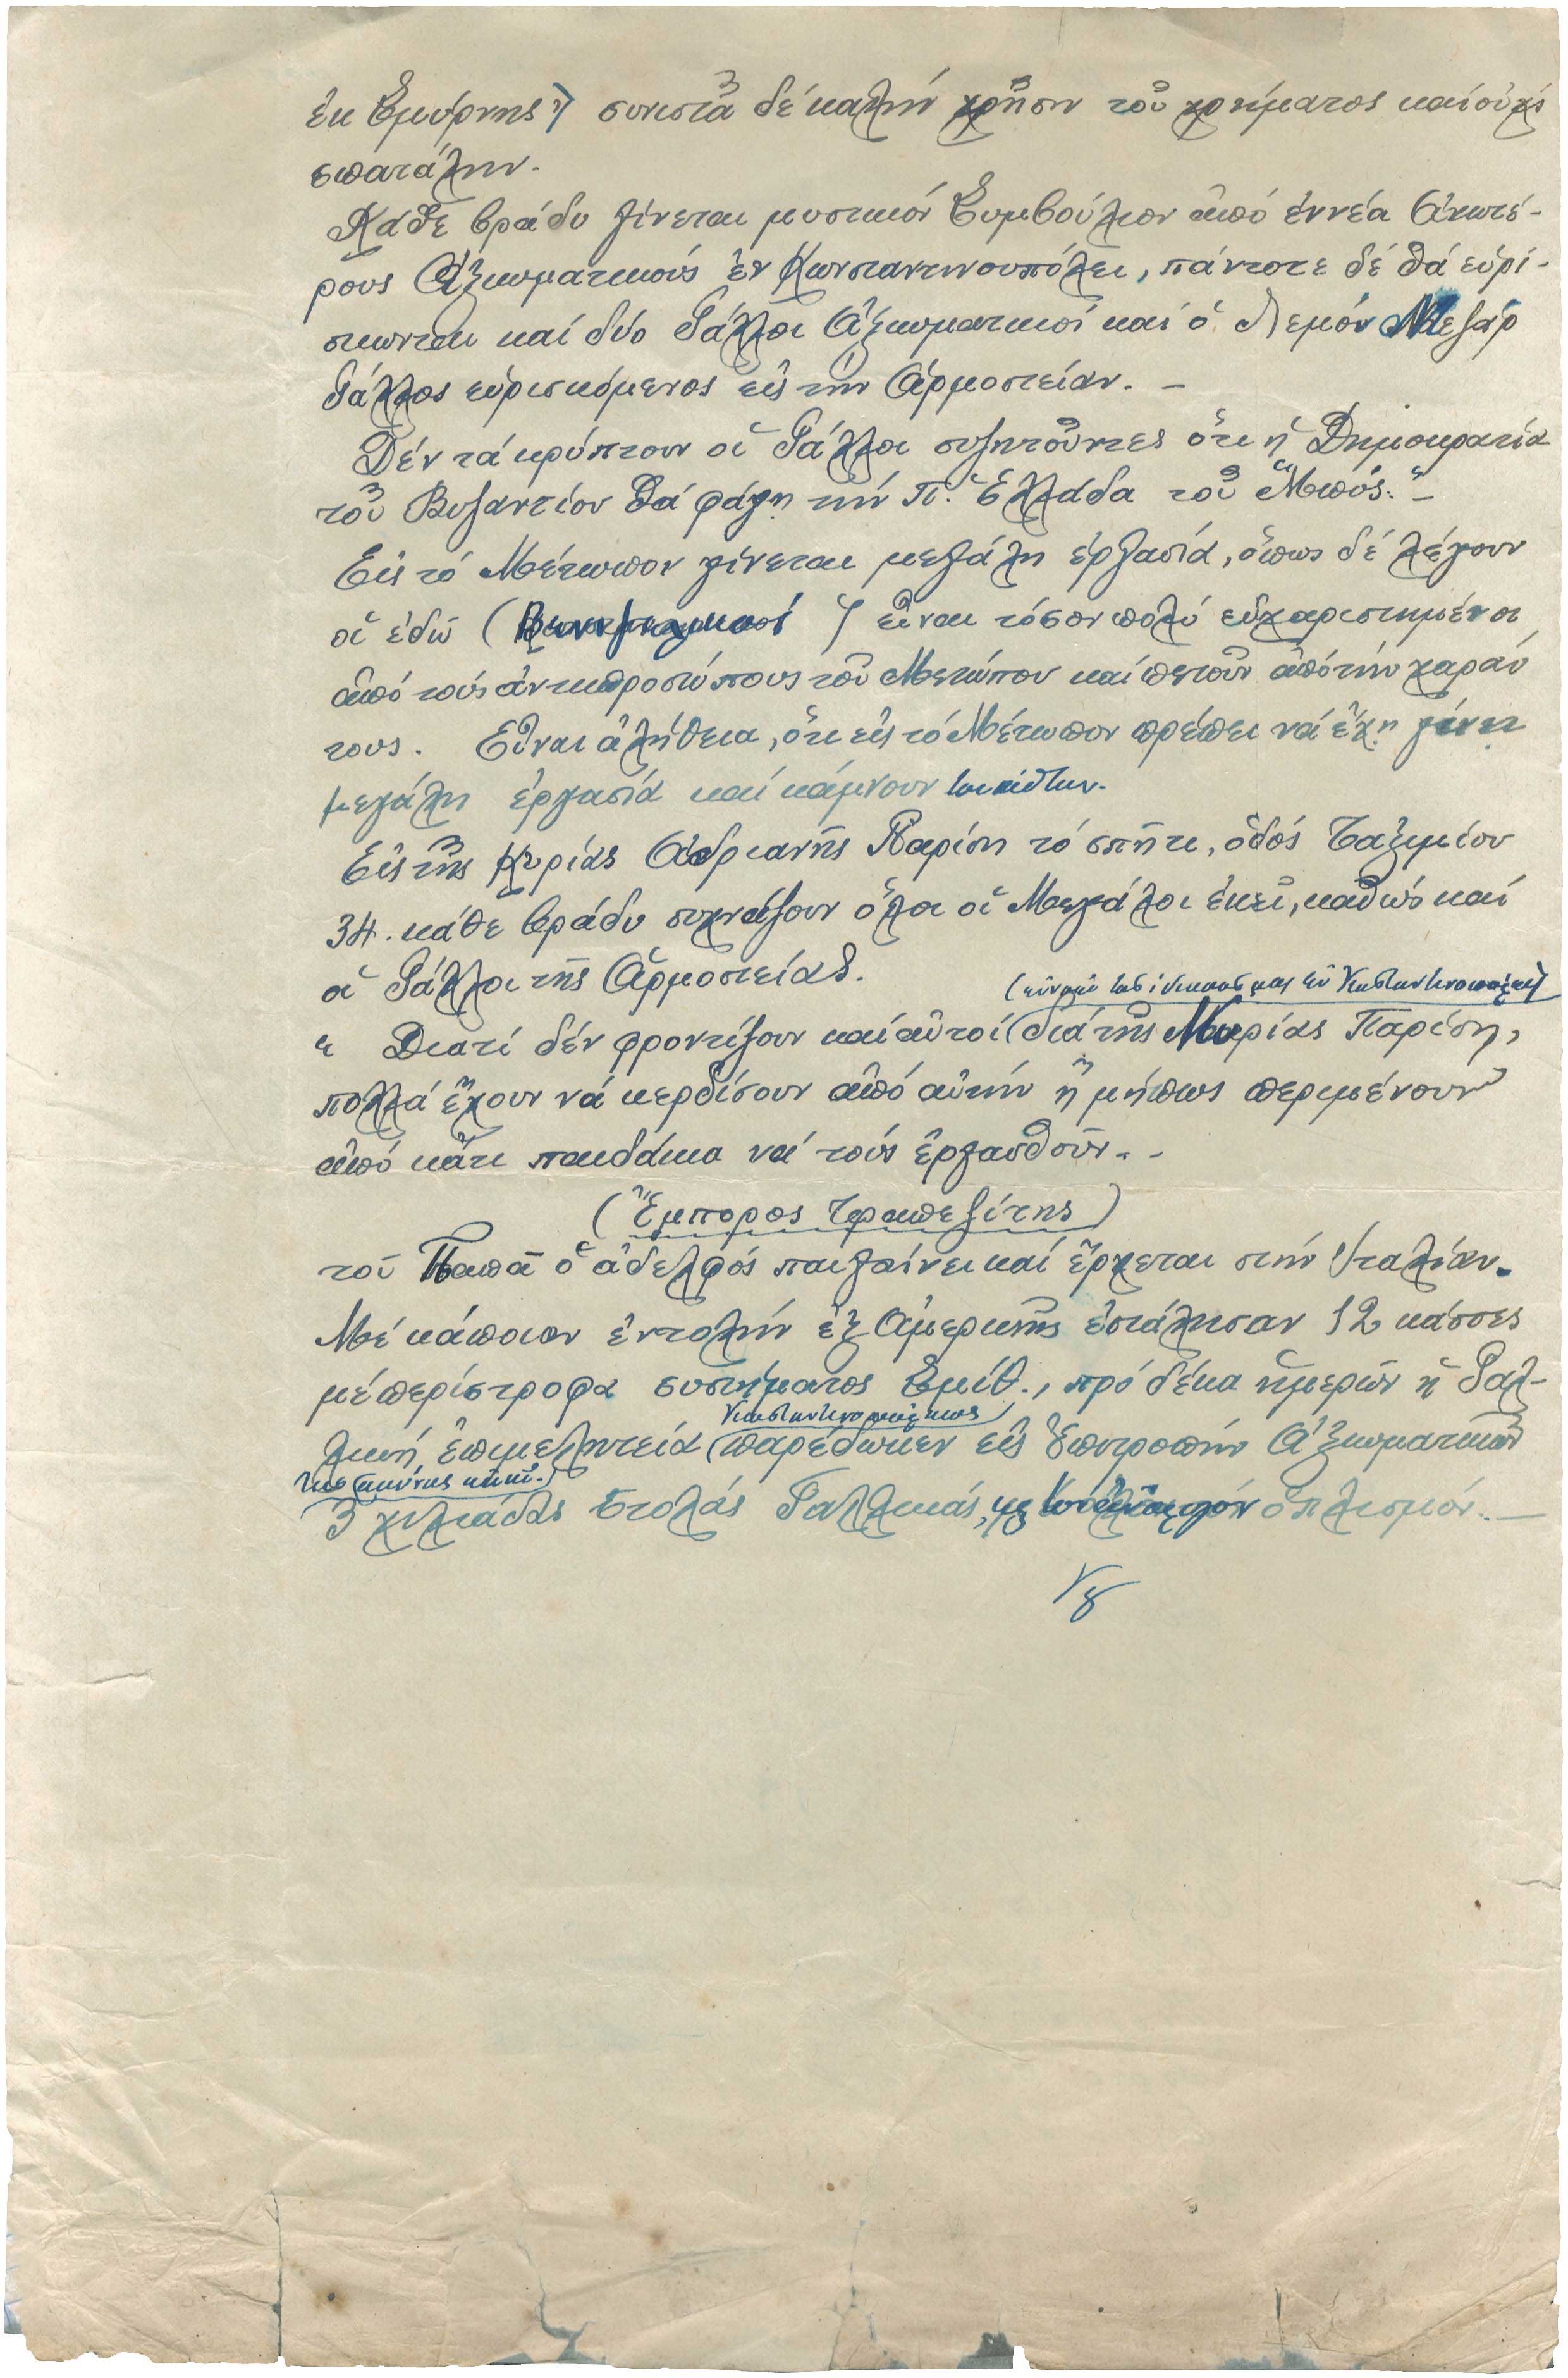 ἐκ Σμύρνης") συνιστᾶ δέ καλήν χρῆσιν τοῦ χρήματος καί οὐχί
σπατάλην.
Κάθε βράδυ γίνεται μυστικόν Συμβούλιον ἀπό ἐννέα Ἀνωτέ-
ρους Ἀξιωματικούς ἐν Κωνσταντινουπόλει, πάντοτε δέ θά εὑρί-
σκωνται καί δύο Γάλλοι Ἀξιωματικοί καί ὁ Λεμόν Μεζόρ
Γάλλος εὑρισκόμενος εἰς τήν Ἁρμοστείαν. -
Δέν τά κρύπτουν οἱ Γάλλοι συζητοῦντες ὅτι ἡ Δημοκρατία
τοῦ Βυζαντίου θά φάγῃ τήν Π. Ἑλλάδα τοῦ "Μπός." -
Εἰς τό Μέτωπον γίνεται μεγάλη ἐργασία, ὅπως δέ λέγουν
οἱ ἐδῶ ( ) εἶναι τόσον πολύ εὐχαριστημένοι
ἀπό τούς ἀντιπροσώπους τοῦ Μετώπου καί πετοῦν ἀπό τήν χαράν
τους. Εἶναι ἀλήθεια, ὅτι εἰς τό Μέτωπον πρέπει νά ἔχῃ γίνει
μεγάλη ἐργασία καί κάμνουν
Εἰς τῆς Κυρίας Ἀδριανῆς Παρίση τό σπῆτι, ὁδός Ταξιμίου
34. κάθε βράδυ συχνάζουν ὅλοι οἱ Μεγάλοι ἐκεῖ, καθώς καί
οἱ Γάλλοι τῆς Ἁρμοστείας.
ἐν Κωνσταντινουπόλει)
" Διατί δέν φροντίζουν καί αὐτοί διά τῆς Μαρίας Παρίση,
πολλά ἔχουν νά κερδίσουν ἀπό αὐτήν ἤ μήπως περιμένουν
ἀπό κάτι παιδάκια νά τούς ἐργασθοῦν. -
(Ἔμπορος Τραπεζίτης)
τοῦ Παπᾶ ὁ ἀδελφός παιγαίνει καί ἔρχεται στήν Ἰταλίαν.
Μέ κάποιον ἐντολήν ἐξ Ἀμερικῆς ἐστάλησαν 12 κάσσες
μέ περίστροφα συστήματος Σμίθ., πρό δέκα ἡμερῶν ἡ Γαλ-
Κωνσταντινουπόλεως
λική ἐπιμελητεία (παρέδωκεν εἰς Ἐπιτροπήν Ἀξιωματικῶν
τῆς ἀμύνης
3 χιλιάδας στολάς Γαλλικάς, ὁπλισμόν. -